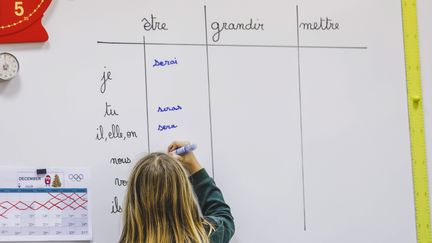 être grandir mettre
je serai
tu seras
il, elle, on sera
nous
vo
ils
DECEMBER
5